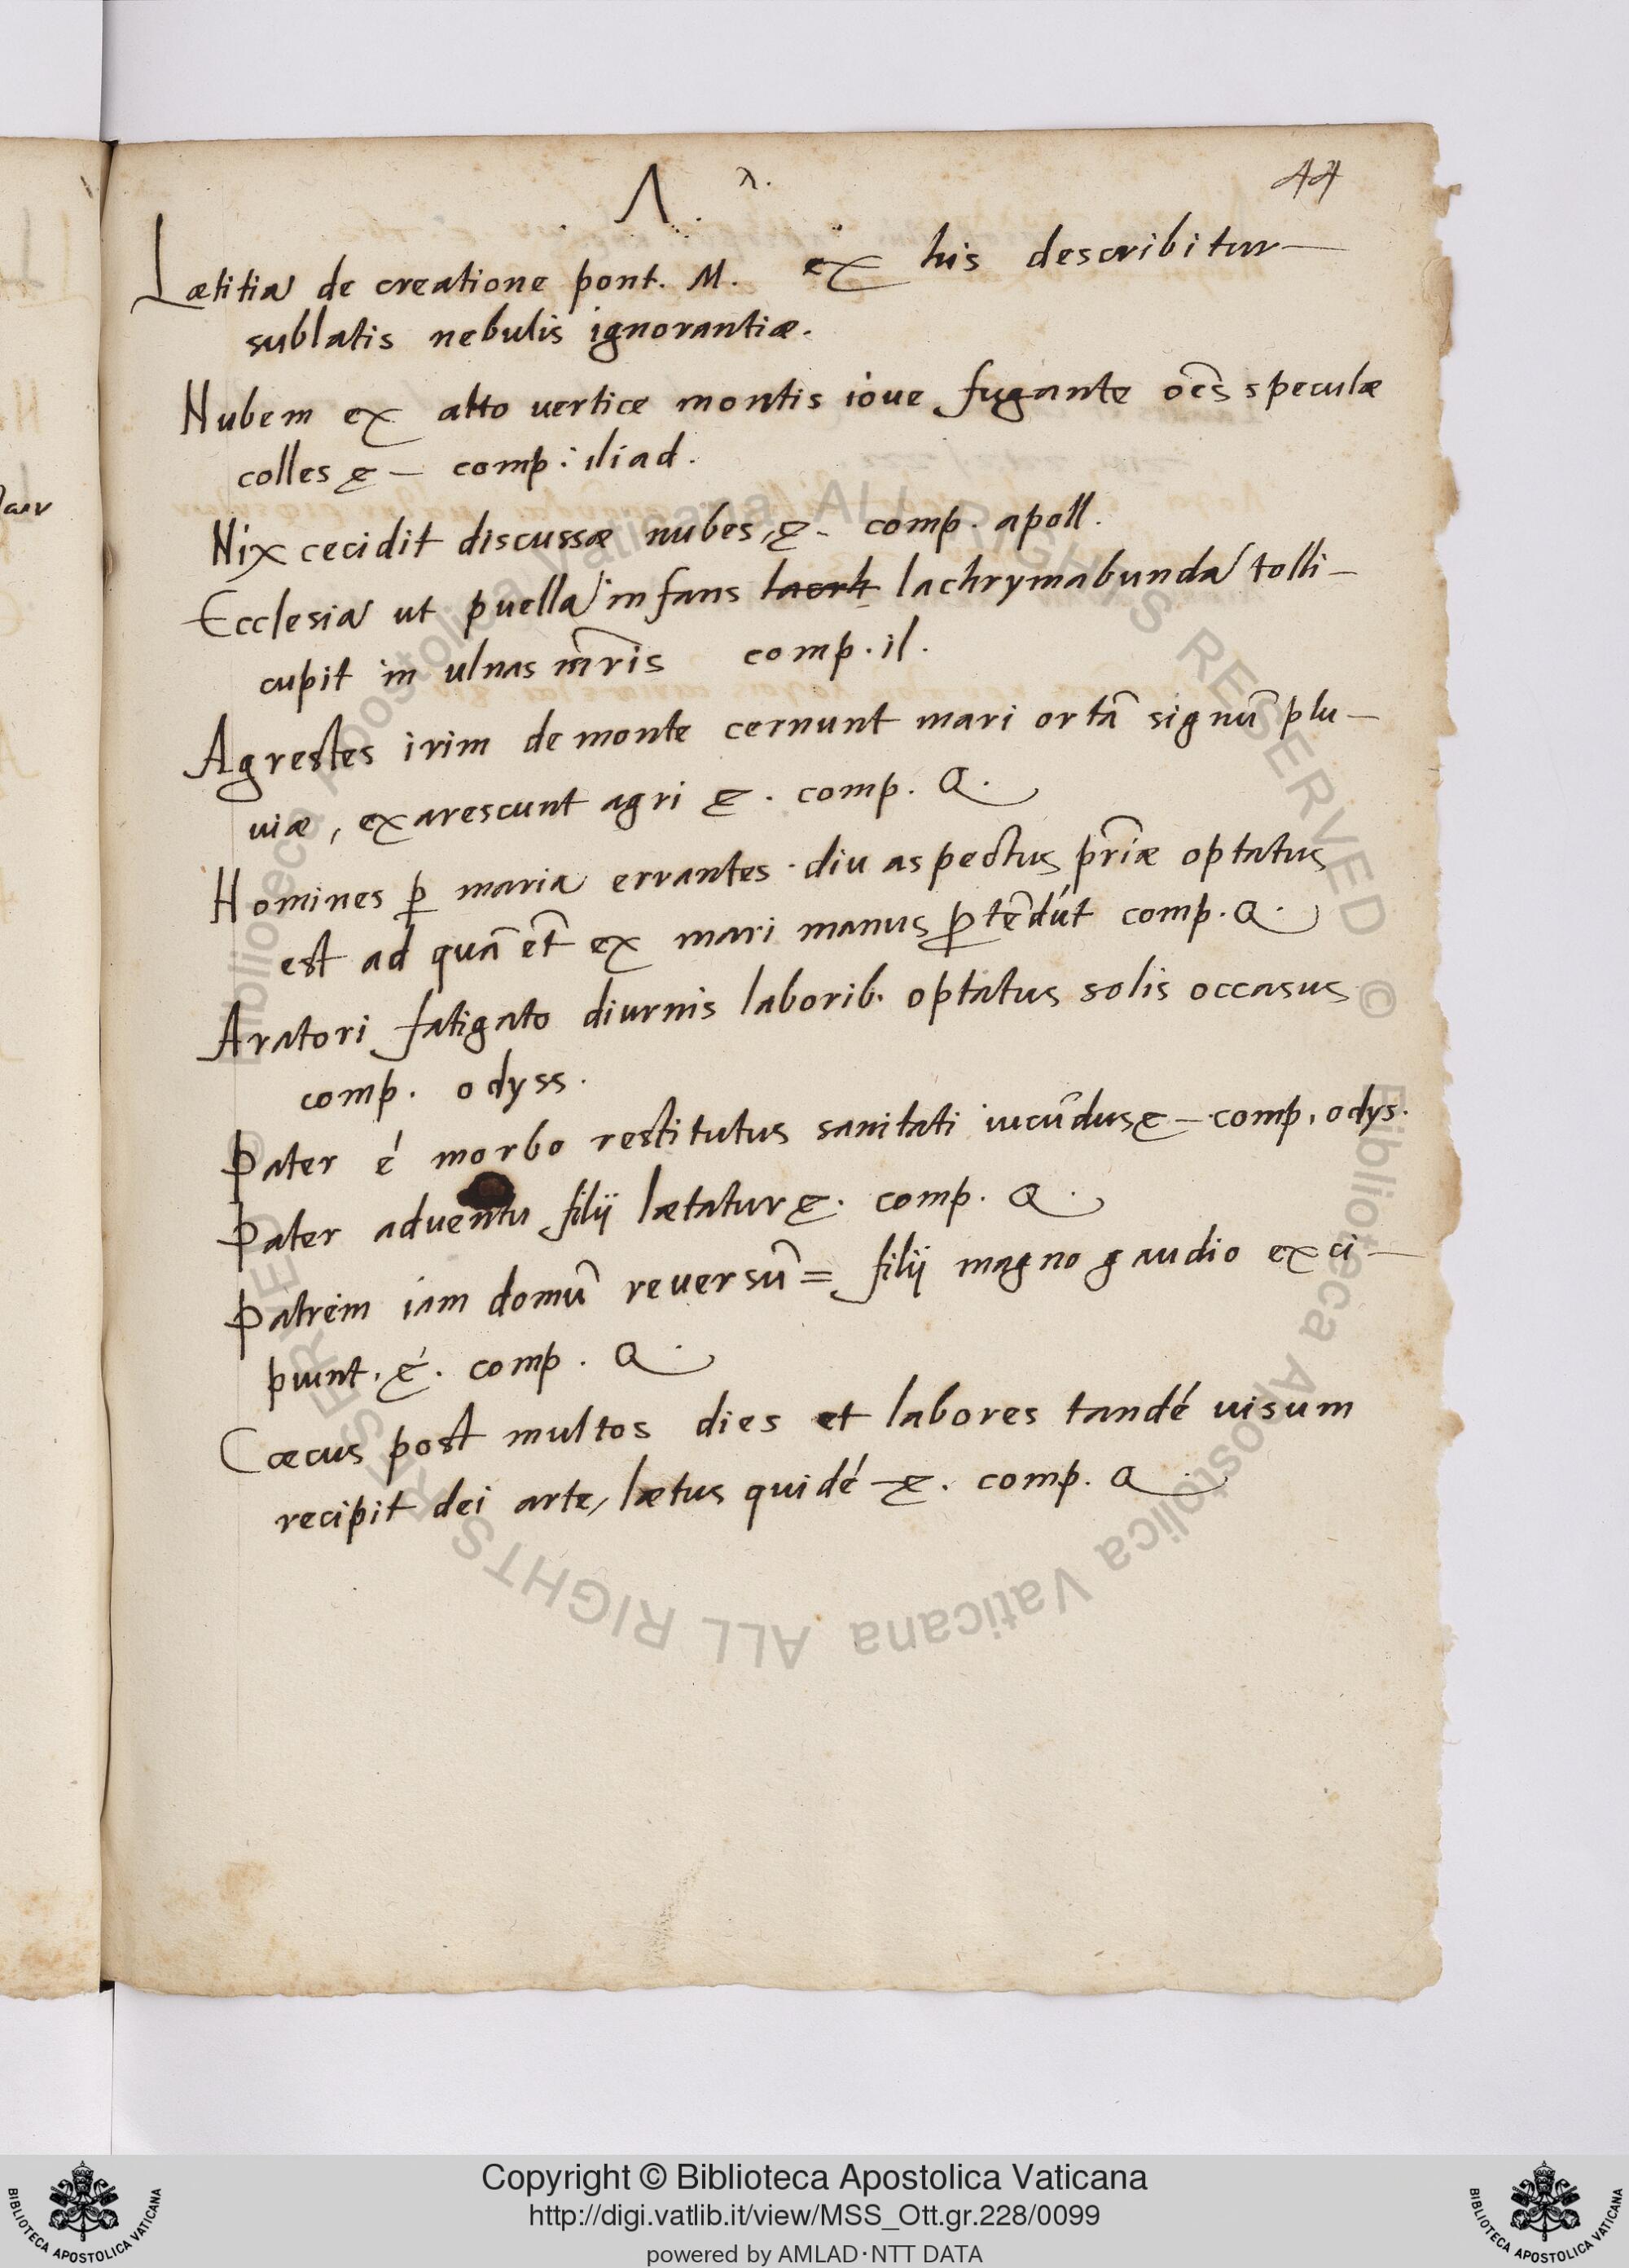 Λ. λ.
44
Lætitia de creatione pont. M. ex his describitur—
sublatis nebulis ignorantiæ.
Nubem ex alto vertice montis ioue fugante oẽs speculæ
colles &— comp: iliad.
Nix cecidit discussæ nubes, &- comp. apoll.
Ecclesia ut puella infans lachrymabunda tolli—
cupit in ulnas mr̃is comp. il.
Agrestes irim de monte cernunt mari ortã signũ plu—
uiæ, exarescunt agri &. comp. Q.
Homines ꝑ maria errantes diu aspectus pr̃iæ optatus
est ad quã et̃ ex mari manus ꝓtẽdũt comp. Q.
Aratori fatigato diurnis laborib. optatus solis occasus
comp. odyss.
Pater é morbo restitutus sanitati iucũdus &— comp, odys.
Pater aduentu filij lætatur &. comp. Q.
Patrem iam domũ reuersũ= filij magno gaudio exci—
piunt, &. comp. Q.
Cæcus post multos dies et labores tandé uisum
recipit dei arte, lætus quidé &. comp. Q.
Biblioteca Apostolica Vaticana ALL RIGHTS RESERVED ©
Biblioteca Apostolica Vaticana ALL RIGHTS RESERVED ©
Copyright © Biblioteca Apostolica Vaticana
http://digi.vatlib.it/view/MSS_Ott.gr.228/0099
powered by AMLAD·NTT DATA
BIBLIOTECA APOSTOLICA VATICANA
BIBLIOTECA APOSTOLICA VATICANA